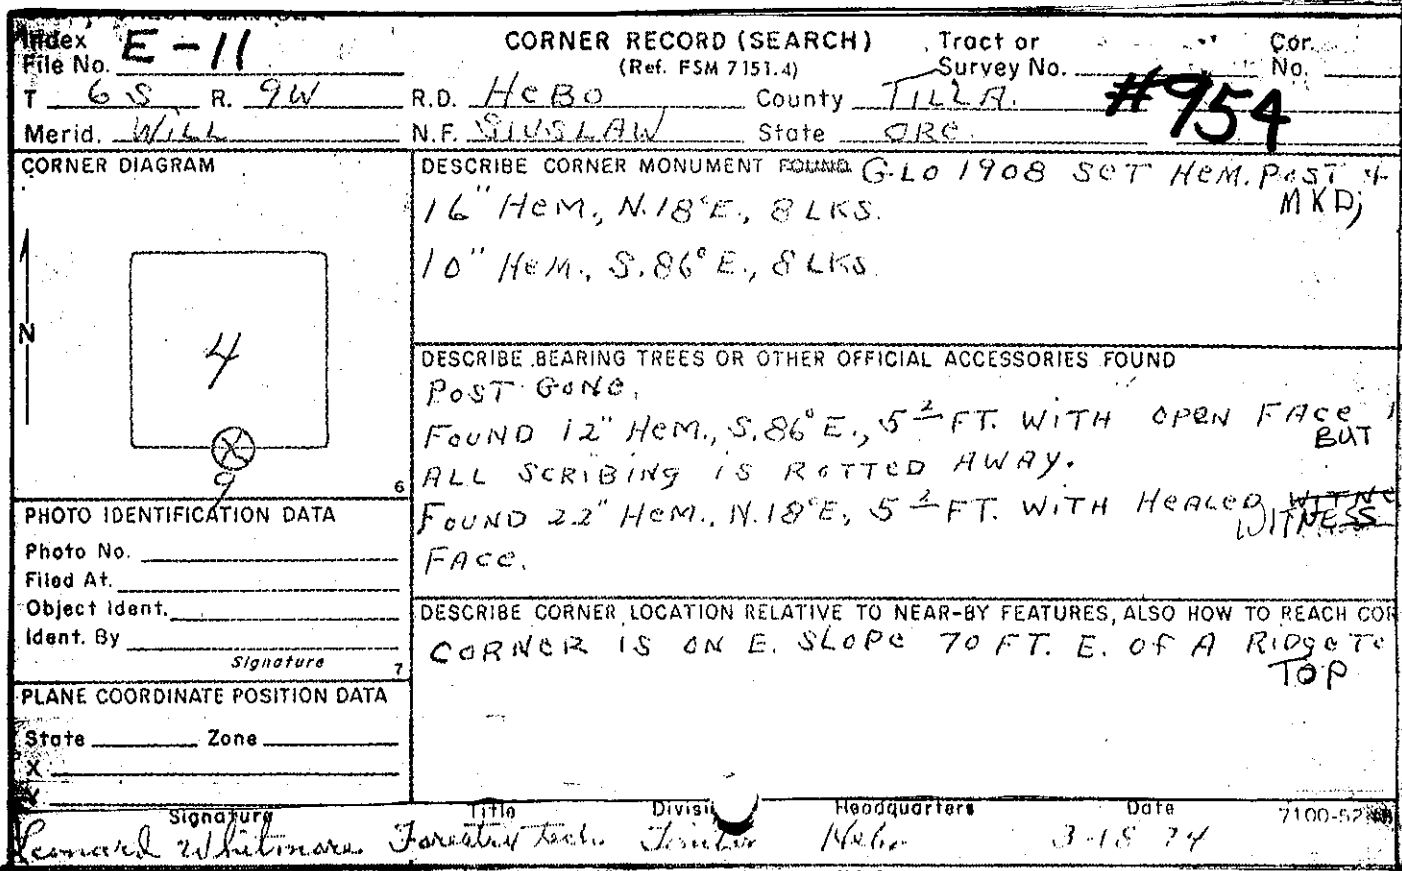 Index
File No. E-11
CORNER RECORD (SEARCH)
(Ref. FSM 7151.4)
Tract or
Survey No.
Cor.
No.
#954
T 6S R. 9W R.D. HEBO County TILLA.
Merid. WILL N.F. SIUSLAW State ORE.
CORNER DIAGRAM
N
4
9
6
DESCRIBE CORNER MONUMENT FOUND G.LO 1908 SET HEM. POST &
MKD;
16" HEM., N.18°E., 8 LKS.
10" HEM., S.86°E., 8 LKS.
DESCRIBE BEARING TREES OR OTHER OFFICIAL ACCESSORIES FOUND
POST GONE.
FOUND 12" HEM., S.86°E., 5 2 FT. WITH OPEN FACE
BUT
ALL SCRIBING IS ROTTED AWAY.
FOUND 22" HEM., N.18°E, 5 2 FT. WITH HEALED
WITNESS
FACE.
PHOTO IDENTIFICATION DATA
Photo No.
Filed At.
Object Ident.
Ident. By
Signature
7
DESCRIBE CORNER LOCATION RELATIVE TO NEAR-BY FEATURES, ALSO HOW TO REACH COR
CORNER IS ON E. SLOPE 70 FT. E. OF A RIDGE TO
TOP
PLANE COORDINATE POSITION DATA
State Zone
X
Y
Signature Title Headquarters Date 7100-52
Leonard Whitmore Forestry Tech. Timber Hebo 3-18 74